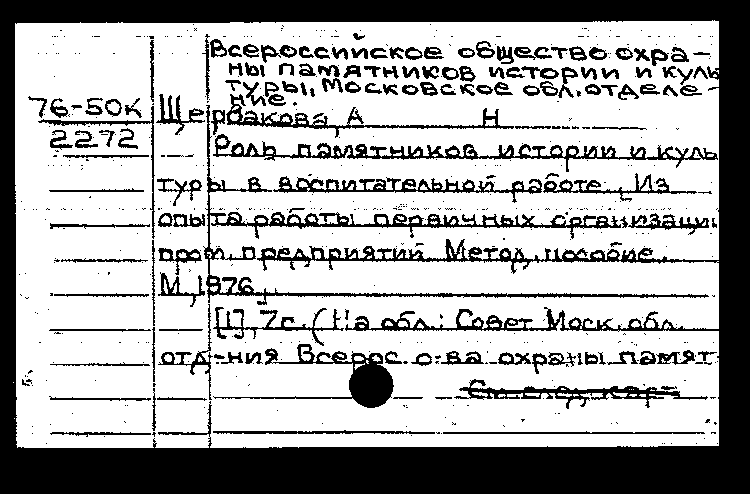 Всероссийское общество охра-
ны памятников истории и куль
туры, Московское обл. отделе-
ние.
76-50К Щербакова, А Н
2272
Роль памятников истории и куль
туры в воспитательной работе. [Из
опыта работы первичных организаци
пром. предприятий Метод. пособие.
М., 1976.
[1], 7с. (На обл.: Совет Моск. обл.
отд-ния Всерос о-ва охраны памят
См. след. кар-